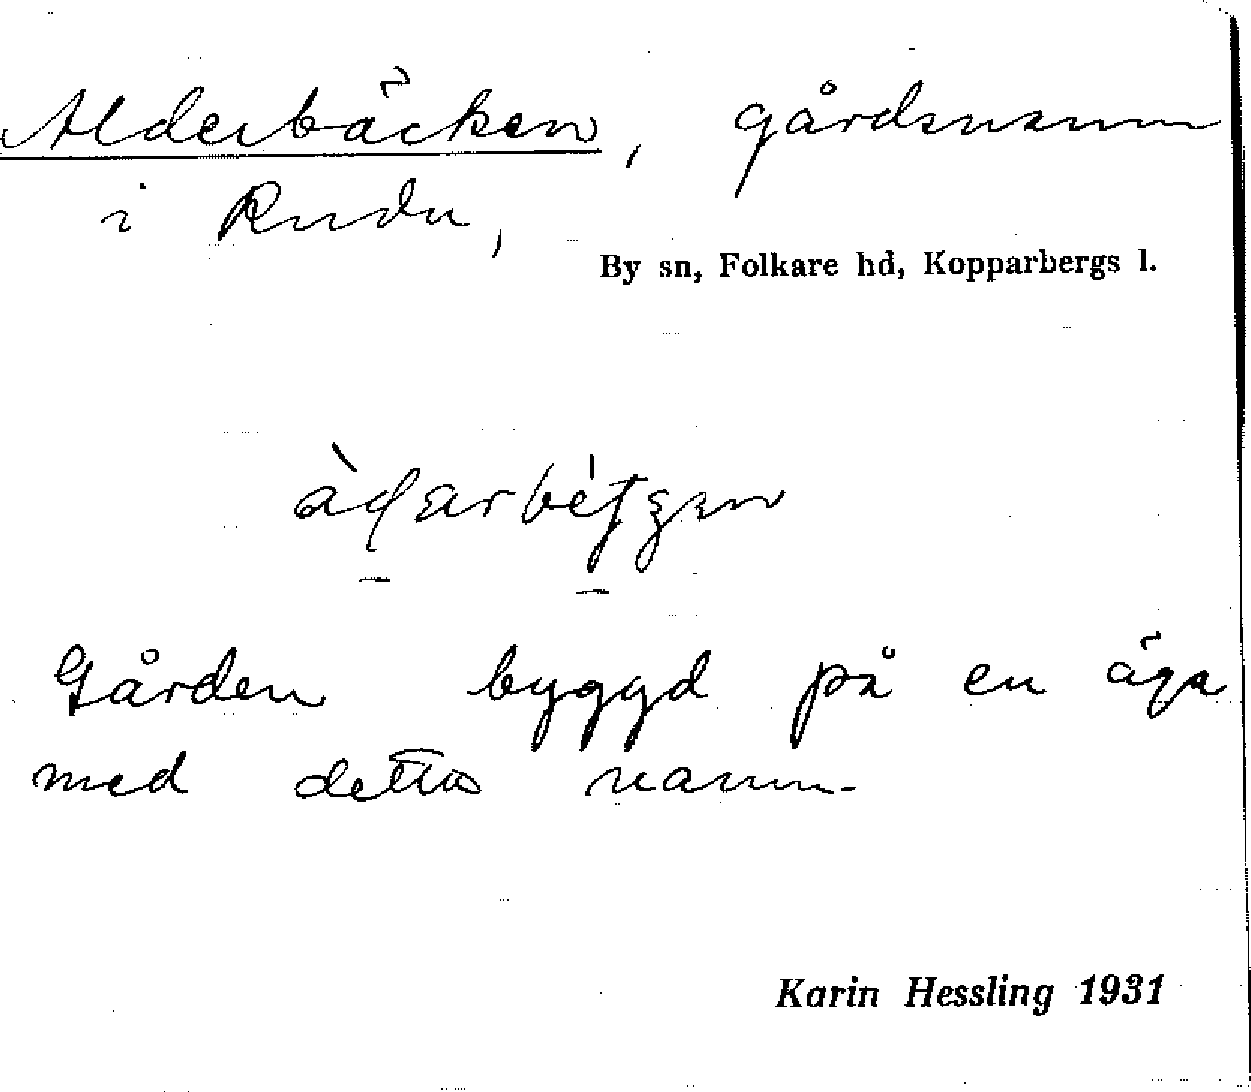 Alderbäcken, gårdsnamn
i Rudu,
By sn, Folkare hd, Kopparbergs l.
Gården byggd på en äga
med detta namn.
Karin Hessling 1931